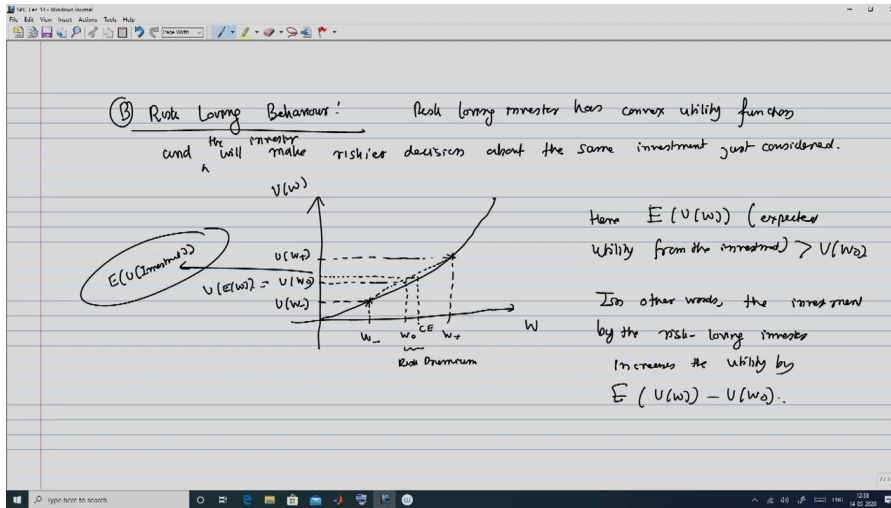 SPC Lec 14 - Windows Journal
File Edit View Insert Actions Tools Help
Page Width
B Risk Loving Behaviour: Risk loving investor has convex utility function
and the investor will make riskier decision about the same investment just considered.
U(W)
U(W+)
E(U(Investment))
U(E(W)) = U(W0)
U(W-)
W- W0 CE W+ W
Risk Premium
Here E(U(W)) (expected
utility from the investment) > U(W0)
In other words, the investment
by the risk-loving investor
increases the utility by
E(U(W)) - U(W0).
Type here to search
ENG
12:38
14-05-2020